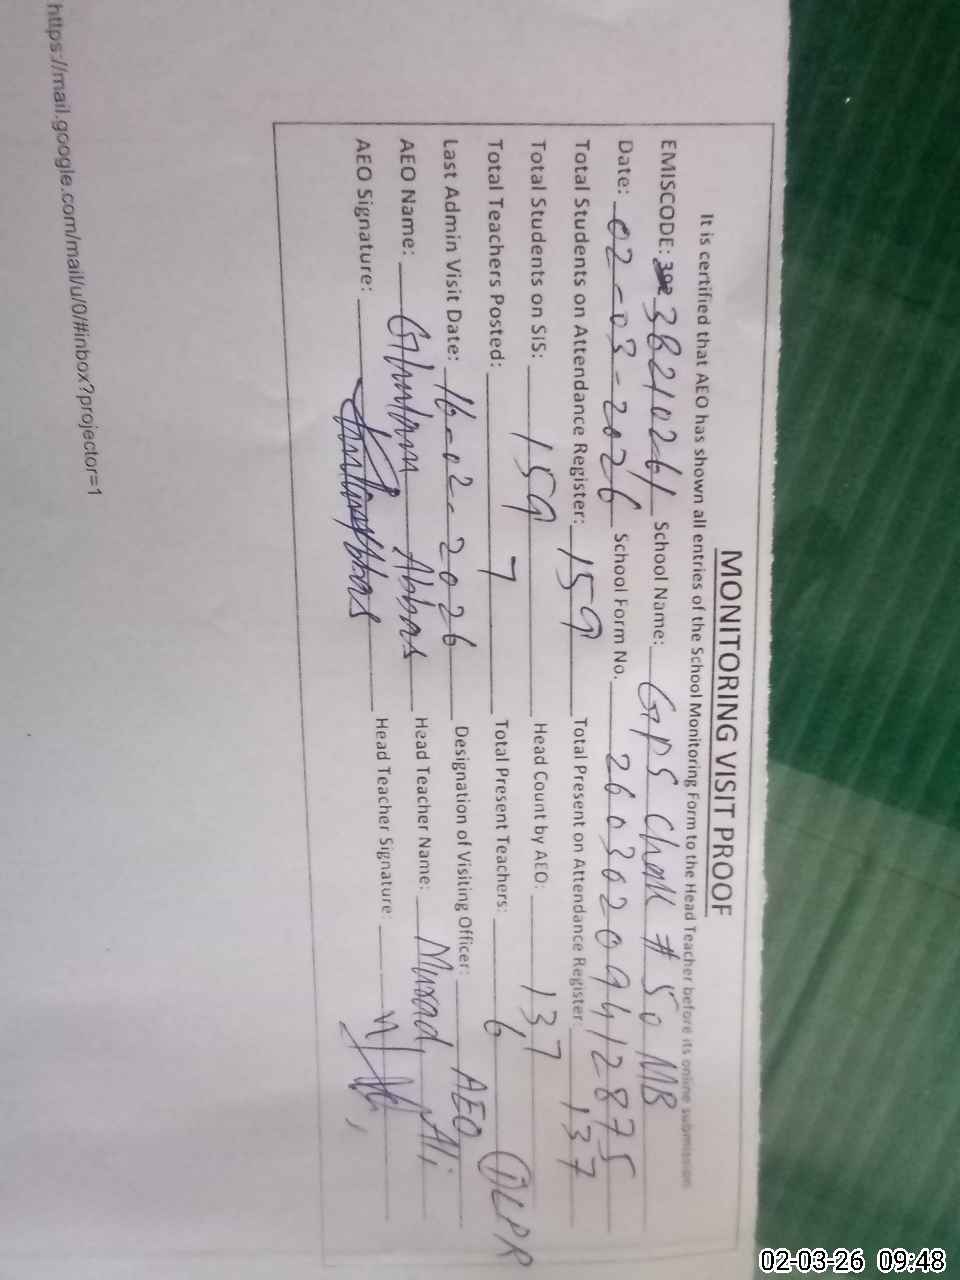 MONITORING VISIT PROOF
It is certified that AEO has shown all entries of the School Monitoring Form to the Head Teacher before its online submission
EMISCODE: 38210261 School Name: GPS Chak # 50 MB
Date: 02-03-2026 School Form No. 26030209412875
Total Students on Attendance Register: 159 Total Present on Attendance Register: 137
Total Students on SIS: 159 Head Count by AEO: 137
Total Teachers Posted: 7 Total Present Teachers: 6 (1) LPR
Last Admin Visit Date: 16-02-2026 Designation of Visiting Officer: AEO
AEO Name: Ghulam Abbas Head Teacher Name: Murad Ali
AEO Signature: Head Teacher Signature:
https://mail.google.com/mail/u/0/#inbox?projector=1
02-03-26 09:48